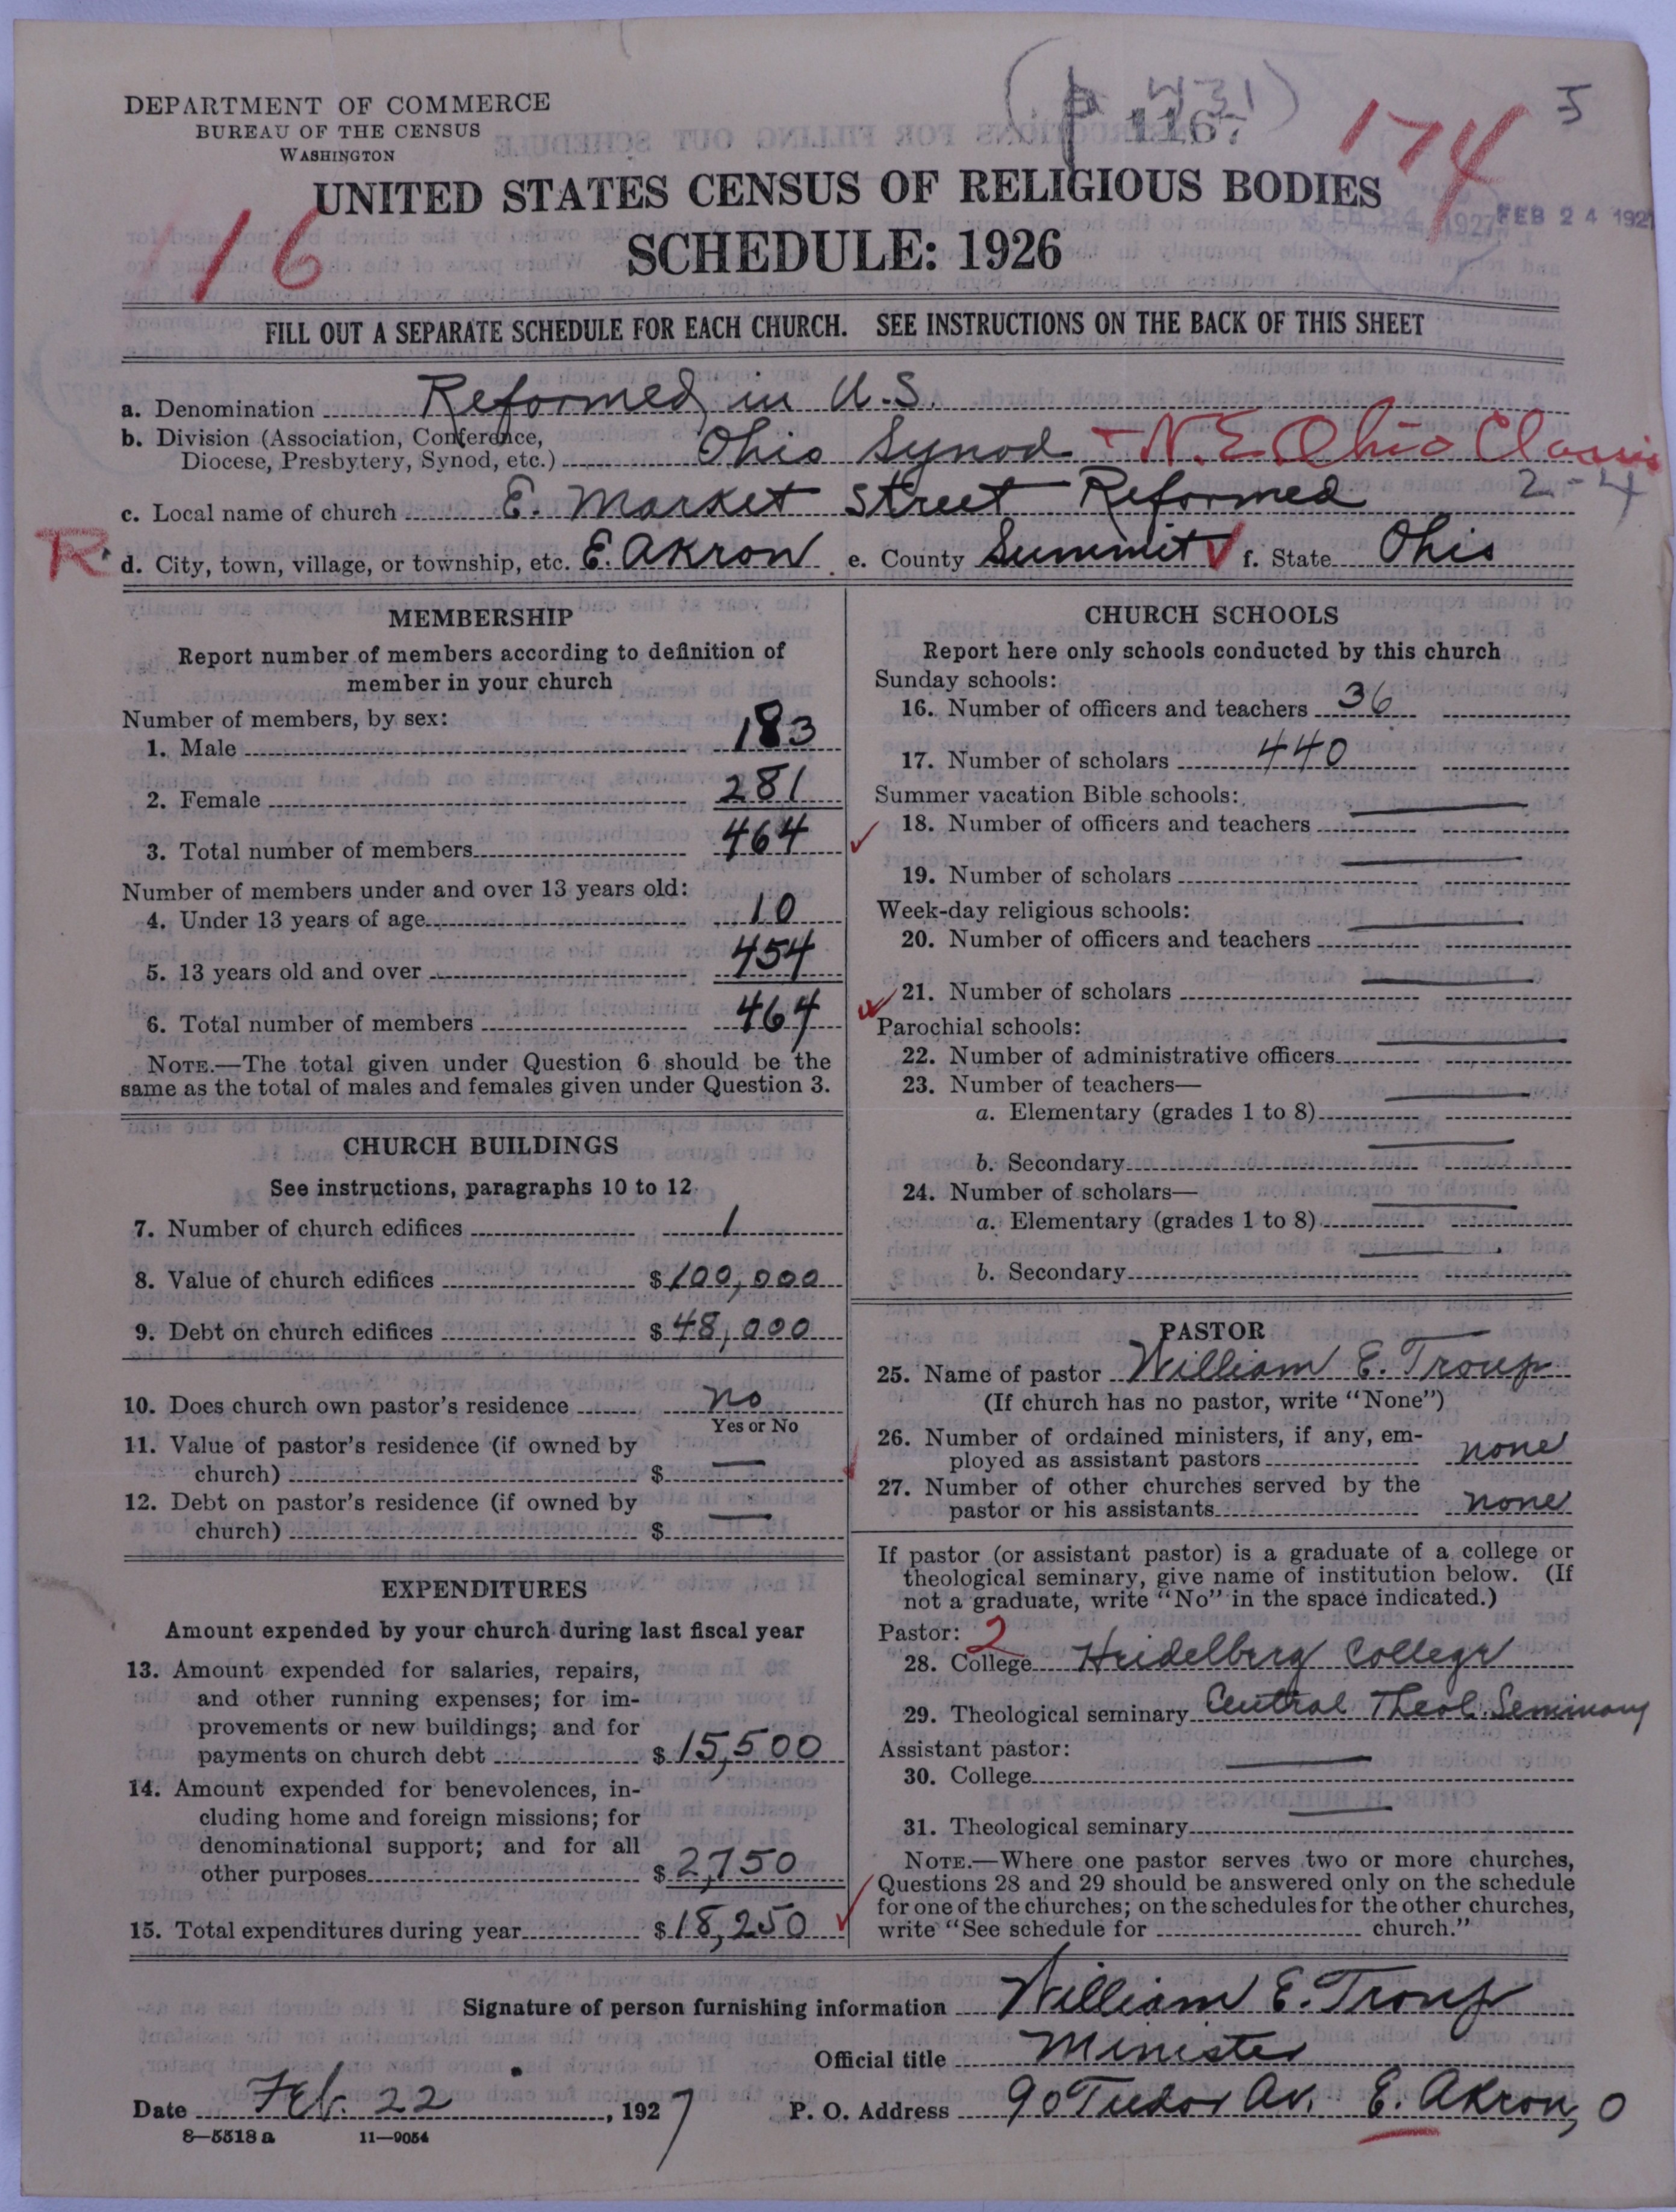 DEPARTMENT OF COMMERCE
BUREAU OF THE CENSUS
WASHINGTON
1167
174
5
UNITED STATES CENSUS OF RELIGIOUS BODIES
FEB 24 1927
16
SCHEDULE: 1926
FILL OUT A SEPARATE SCHEDULE FOR EACH CHURCH. SEE INSTRUCTIONS ON THE BACK OF THIS SHEET
a. Denomination Reformed in U.S.
b. Division (Association, Conference,
Diocese, Presbytery, Synod, etc.) Ohio Synod - N.E. Ohio Classis
2-4
c. Local name of church E. Market Street Reformed
R d. City, town, village, or township, etc. E. Akron e. County Summit f. State Ohio
MEMBERSHIP
Report number of members according to definition of
member in your church
Number of members, by sex:
1. Male 183
2. Female 281
3. Total number of members 464
Number of members under and over 13 years old:
4. Under 13 years of age 10
5. 13 years old and over 454
6. Total number of members 464
NOTE.—The total given under Question 6 should be the
same as the total of males and females given under Question 3.
CHURCH BUILDINGS
See instructions, paragraphs 10 to 12
7. Number of church edifices 1
8. Value of church edifices $100,000
9. Debt on church edifices $48,000
10. Does church own pastor's residence no
Yes or No
11. Value of pastor's residence (if owned by
church) $ —
12. Debt on pastor's residence (if owned by
church) $ —
EXPENDITURES
Amount expended by your church during last fiscal year
13. Amount expended for salaries, repairs,
and other running expenses; for im-
provements or new buildings; and for
payments on church debt $15,500
14. Amount expended for benevolences, in-
cluding home and foreign missions; for
denominational support; and for all
other purposes $2,750
15. Total expenditures during year $18,250
CHURCH SCHOOLS
Report here only schools conducted by this church
Sunday schools:
16. Number of officers and teachers 36
17. Number of scholars 440
Summer vacation Bible schools:
18. Number of officers and teachers —
19. Number of scholars —
Week-day religious schools:
20. Number of officers and teachers —
21. Number of scholars —
Parochial schools:
22. Number of administrative officers —
23. Number of teachers—
a. Elementary (grades 1 to 8) —
b. Secondary —
24. Number of scholars—
a. Elementary (grades 1 to 8) —
b. Secondary —
PASTOR
25. Name of pastor William E. Troup
(If church has no pastor, write "None")
26. Number of ordained ministers, if any, em-
ployed as assistant pastors none
27. Number of other churches served by the
pastor or his assistants none
If pastor (or assistant pastor) is a graduate of a college or
theological seminary, give name of institution below. (If
not a graduate, write "No" in the space indicated.)
Pastor: 2
28. College Heidelberg College
29. Theological seminary Central Theol. Seminary
Assistant pastor:
30. College —
31. Theological seminary —
NOTE.—Where one pastor serves two or more churches,
Questions 28 and 29 should be answered only on the schedule
for one of the churches; on the schedules for the other churches,
write "See schedule for church."
Signature of person furnishing information William E. Troup
Official title Minister
Date Feb. 22, 1927 P. O. Address 90 Tudor Av. E. Akron, O
8—5518 a 11—9054